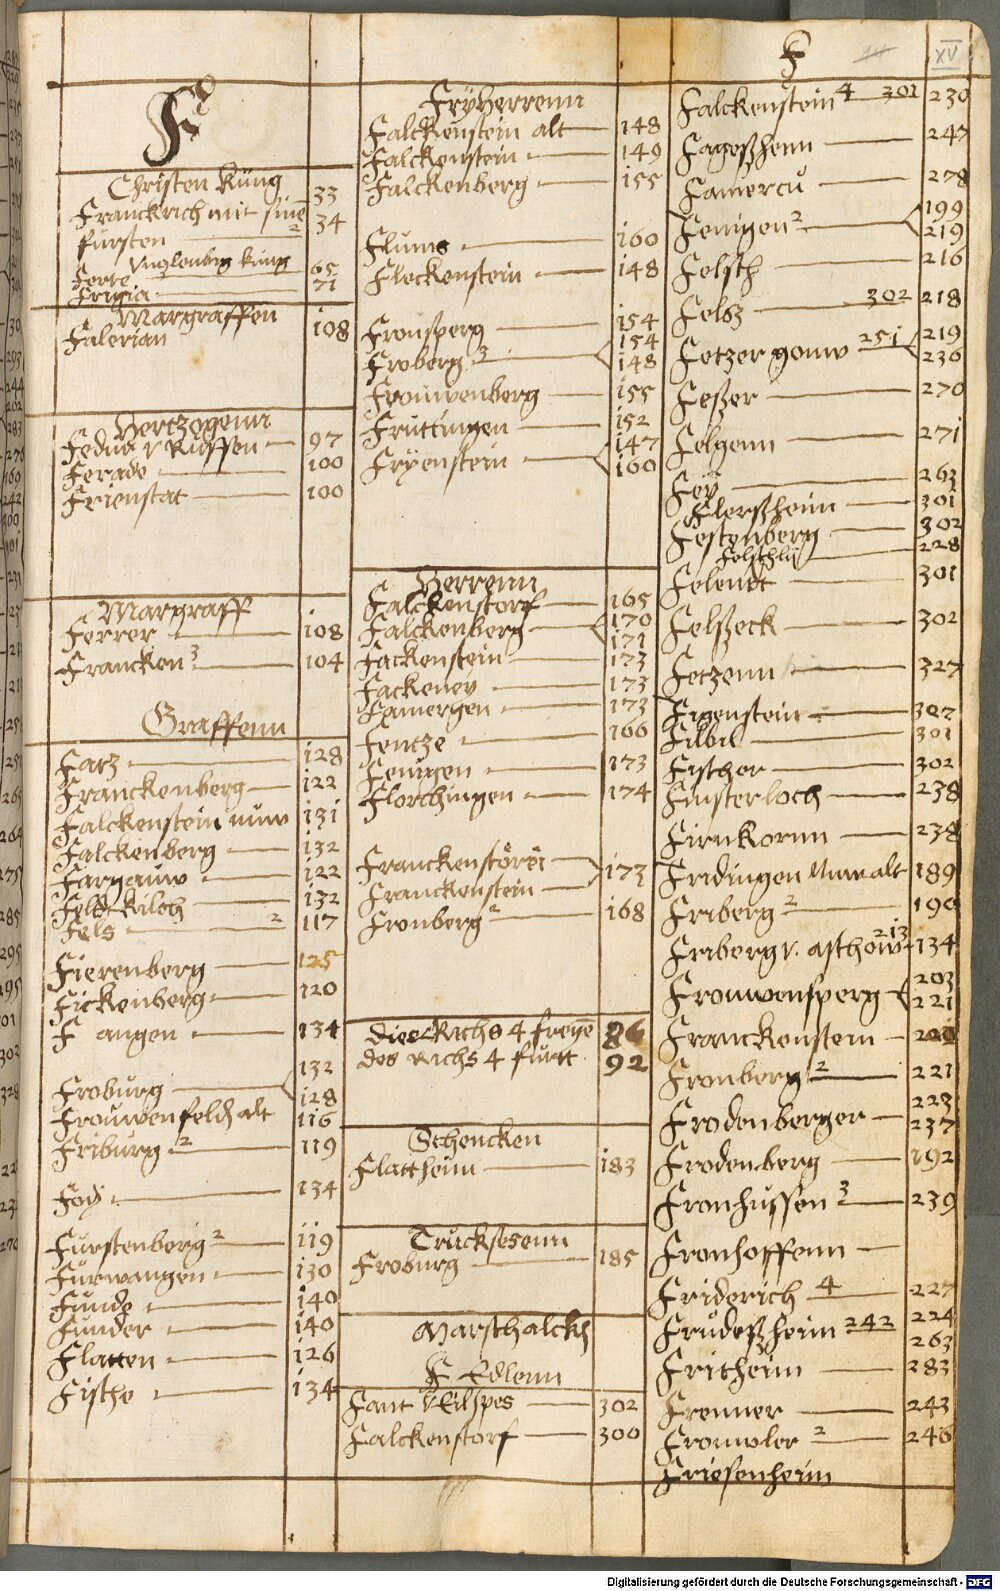 F
Christen Küng
33
Franckrich mit sine
34
fursten 2
Vnglenbig küng
Ferre 65
Frigia 71
Margraffen
Falerian 108
Hertzogenn
Fedud v Rüssen 97
Ferade 100
Frienstat 100
Margraff
Ferrer 108
Francken 3 104
Graffenn
Farz 128
Franckenberg 122
Falckenstein nüw 131
Falckenberg 132
Fargauw 122
Feltkilch 132
Fels 2 117
Fierenberg 125
Fickenberg 120
F angen 134
132
Froburg 128
Frouwenfeld alt 116
Friburg 2 119
Foy 134
Furstenberg 2 119
Furwangen 130
Fundz 140
Funder 140
Flatten 126
Fische 134
Fryherrenn
Falckenstein alt 148
Falckenstein 149
Falckenberg 155
Flums 160
Fleckenstein 148
Fronsperg 154
Froberg 3 154
148
Frouwenberg 155
Fruttingen 152
Fryenstein 147
160
Herrenn
Falckenstorf 165
Falckenberg 170
171
Fackenstein 173
Fackeney 173
Famergen 173
Fentze 166
Fenigen 173
Florchingen 174
Franckenstörei 173
Franckenstein
Fronberg 2 168
Die Richs 4 freye 86
des Richs 4 fürst 92
Schencken
Flattheim 183
Trucksesenn
Froburg 185
Marschalckh
F Edlenn
Fant v Eilspes 302
Falckenstorf 300
F
XV
Falckenstein 4 301 230
Fageßhenn 247
Famercü 278
Fenigen 2 199
219
Felsch 216
Felsz 302 218
Fetzer gouw 251 219
236
Feßer 270
Felgenn 271
Fey 263
Flerßheim 301
Festenberg 302
Felschly 228
Felendt 301
Felßeck 302
Fetzenn 327
Figenstein 307
Filbil 301
Fischer 302
Finsterloch 238
Firnkornn 238
Fridingen Nuw alt 189
Friberg 2 190
Friberg v. aschow 213 134
Frouwensperg 203
221
Franckenstein 209
Fronberg 2 221
Frodenberger 223
237
Frodenberg 192
Fronhussen 3 239
Fronhoffenn
Friderich 4 227
Frudeßheim 242 224
263
Fritheim 283
Frenner 243
Fromoler 2 246
Friesenheim
Digitalisierung gefördert durch die Deutsche Forschungsgemeinschaft - DFG